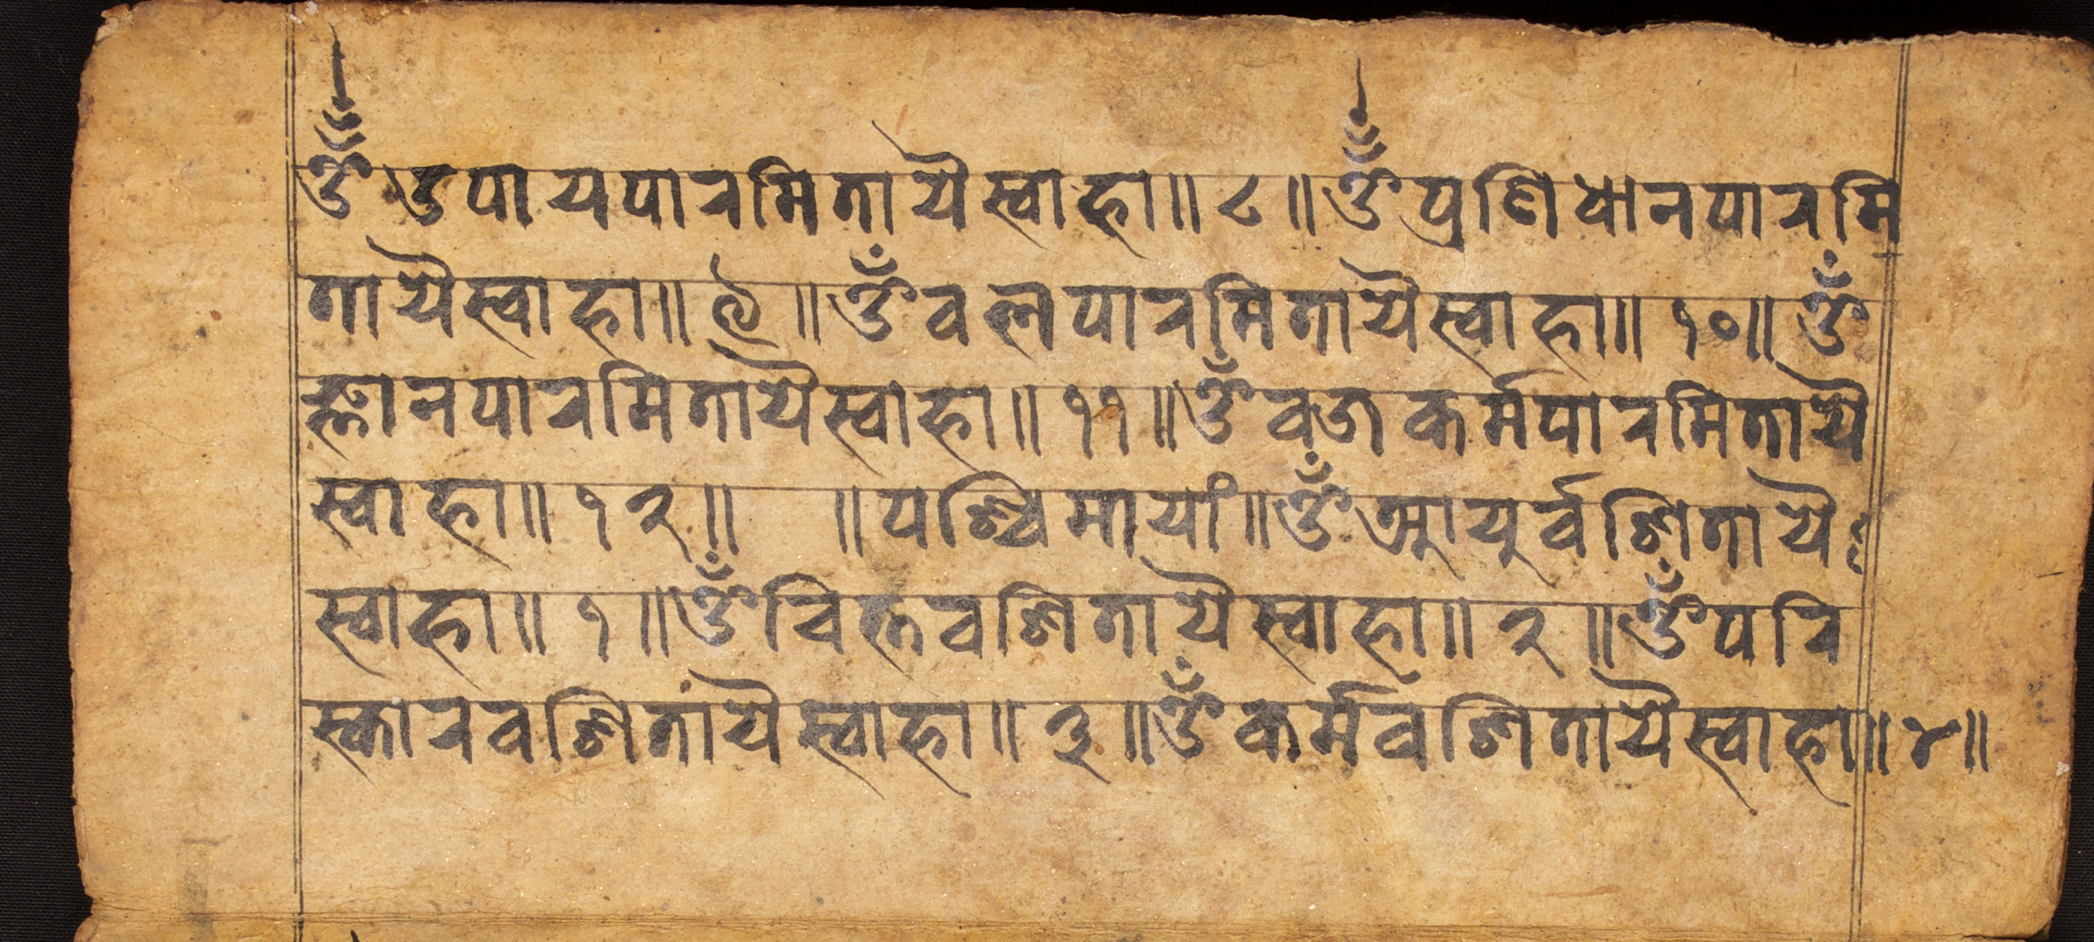 ॐ उपायपारमितायै स्वाहा॥ ८॥ ॐ प्रणिधानपारमि
तायै स्वाहा॥ ९॥ ॐ वलपारमितायै स्वाहा॥ १०॥ ॐ
ज्ञानपारमितायै स्वाहा॥ ११॥ ॐ वज्रकर्मपारमितायै
स्वाहा॥ १२॥ ॥पश्चिमायां॥ ॐ आयुर्वशितायै
स्वाहा॥ १॥ ॐ चित्तवशितायै स्वाहा॥ २॥ ॐ परि
स्कारवशितायै स्वाहा॥ ३॥ ॐ कर्मवशितायै स्वाहा॥ ४॥